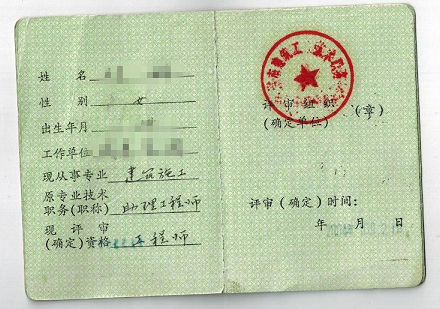 姓 名
性 别 女
出生年月
工作单位
现从事专业 建筑施工
原专业技术
职务(职称) 助理工程师
现 评 审
(确定)资格 工程师
评 审 组 织
(确定单位) (章)
评审（确定）时间：
年 月 日